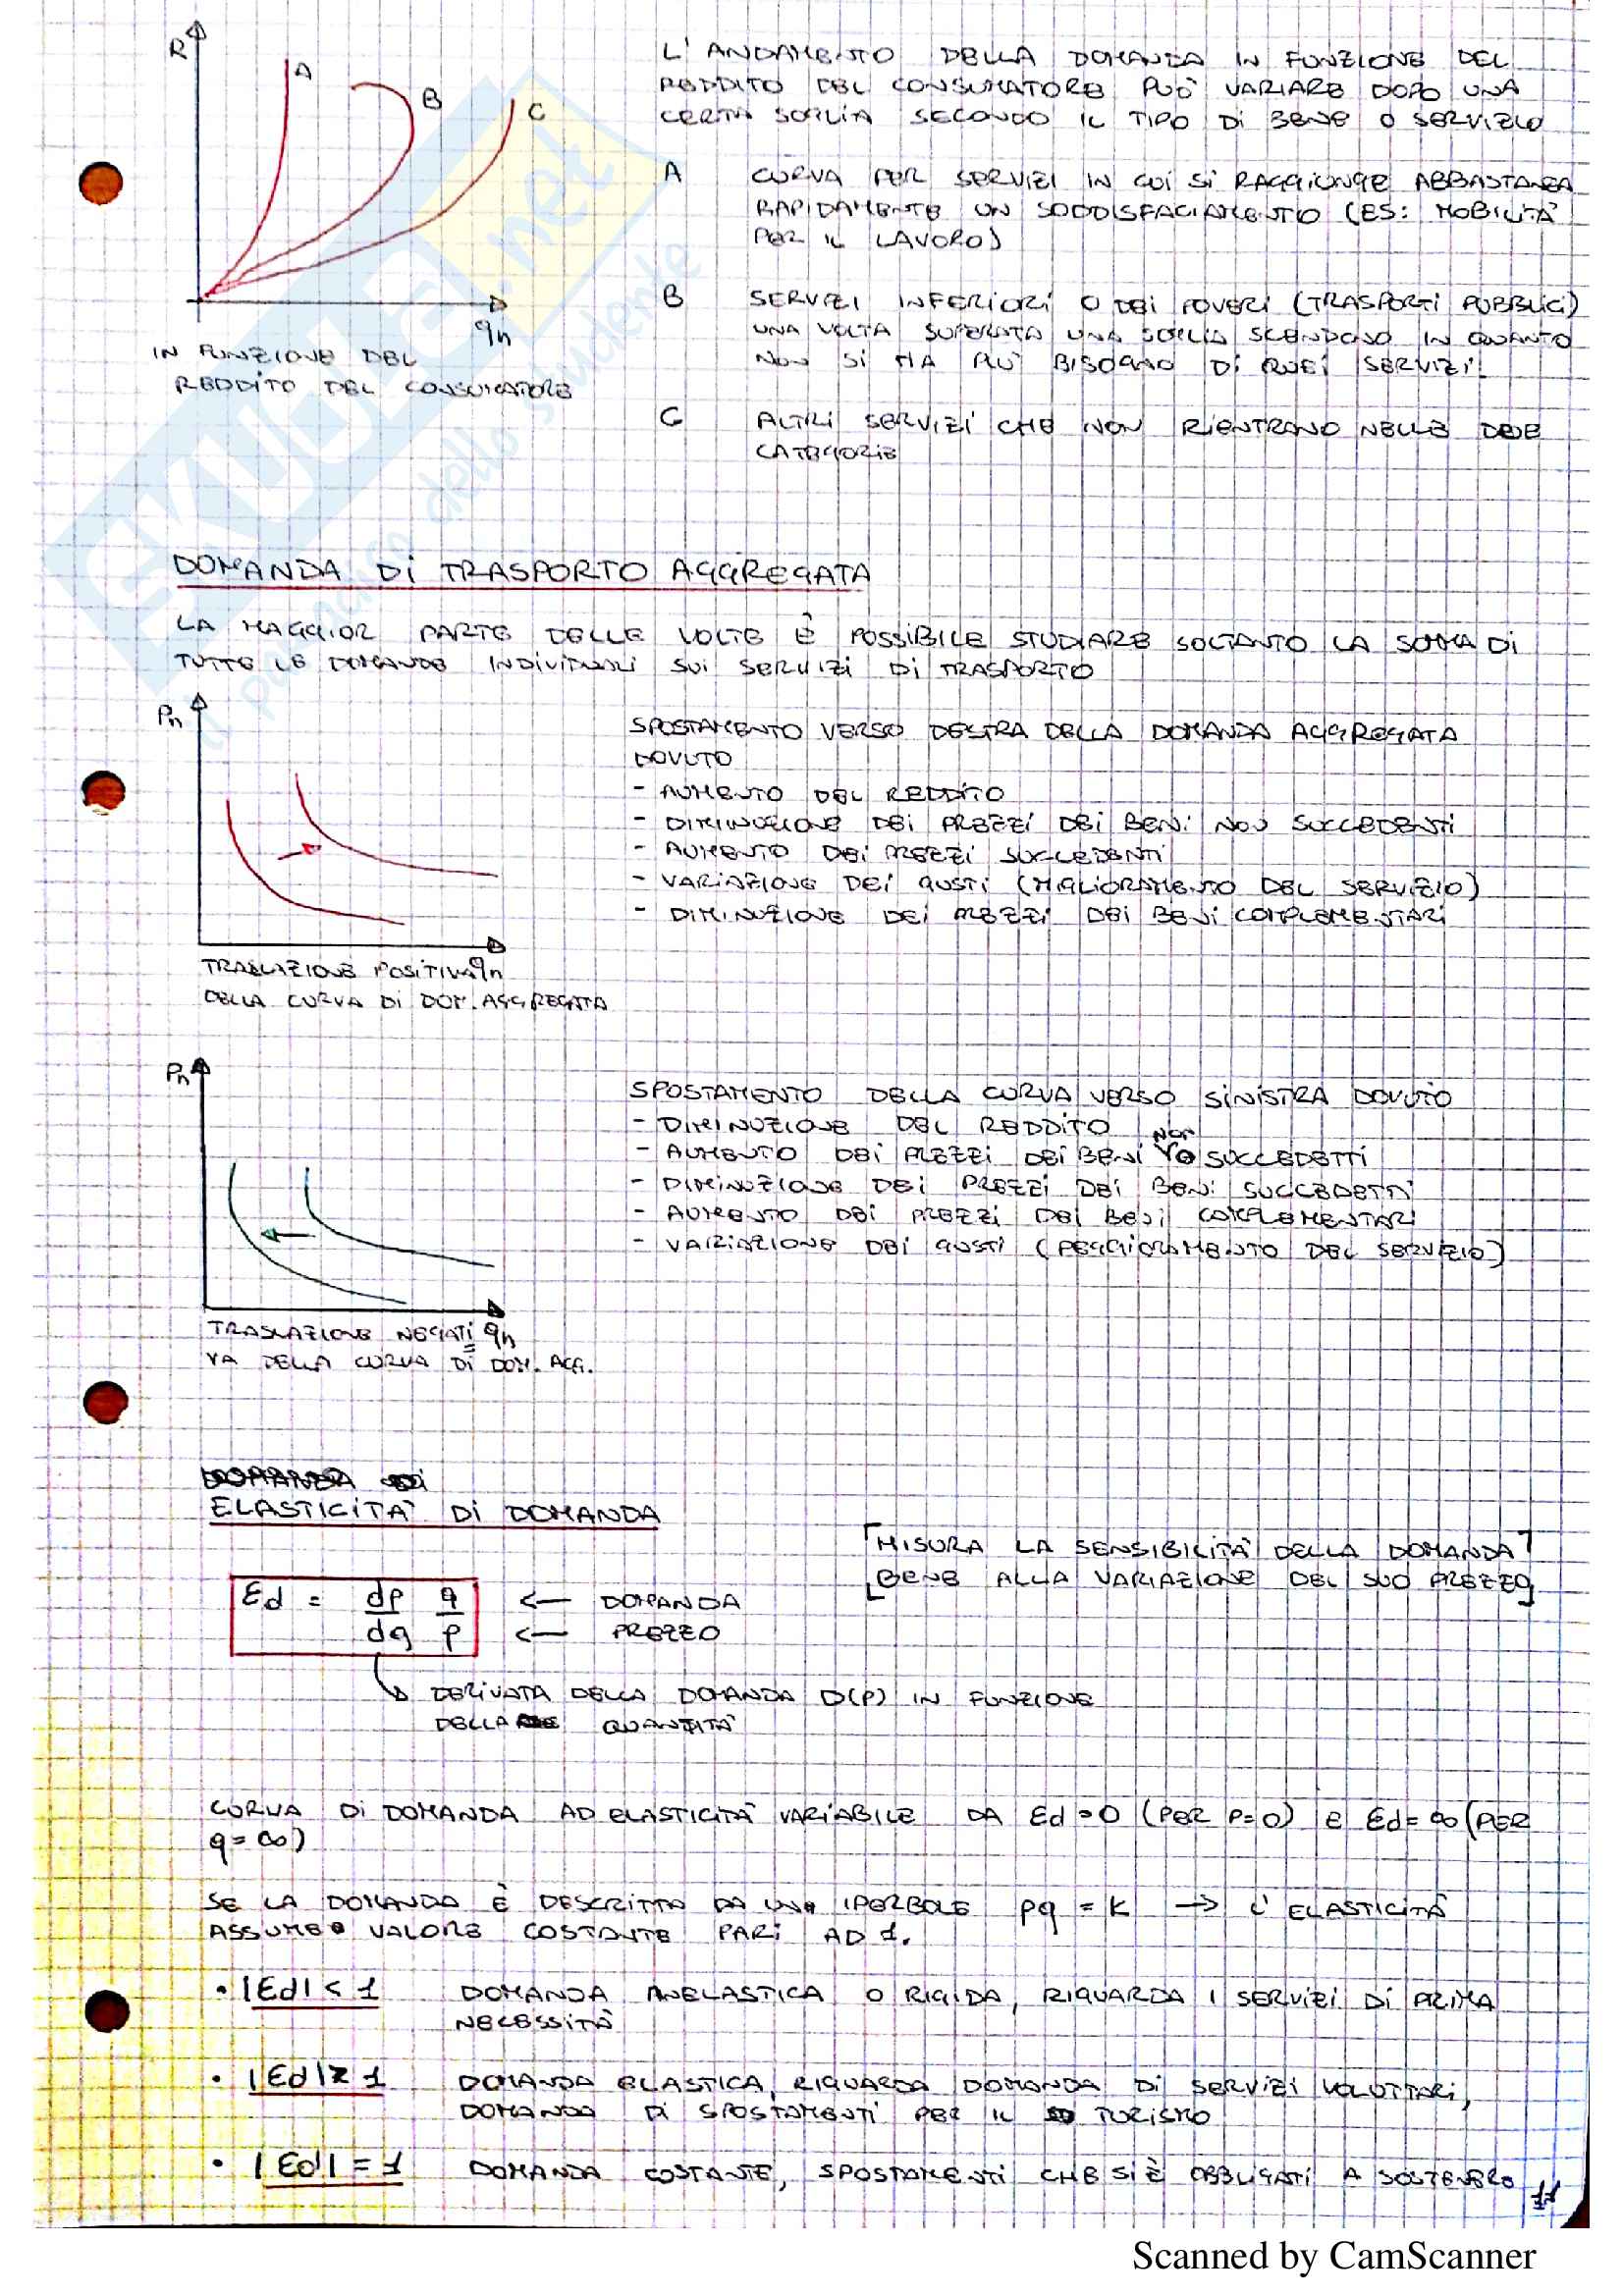 R
A
B
C
qn
IN FUNZIONE DEL
REDDITO DEL CONSUMATORE
L'ANDAMENTO DELLA DOMANDA IN FUNZIONE DEL
REDDITO DEL CONSUMATORE PUÒ VARIARE DOPO UNA
CERTA SOGLIA SECONDO IL TIPO DI BENE O SERVIZIO
A CURVA PER SERVIZI IN CUI SI RAGGIUNGE ABBASTANZA
RAPIDAMENTE UN SODDISFACIAMENTO (ES: MOBILITÀ
PER IL LAVORO)
B SERVIZI INFERIORI O DEI POVERI (TRASPORTI PUBBLICI)
UNA VOLTA SUPERATA UNA SOGLIA SCENDONO IN QUANTO
NON SI HA PIÙ BISOGNO DI QUEI SERVIZI.
C ALTRI SERVIZI CHE NON RIENTRANO NELLE DUE
CATEGORIE
SKUOLA.net
il paradiso dello studente
DOMANDA DI TRASPORTO AGGREGATA
LA MAGGIOR PARTE DELLE VOLTE È POSSIBILE STUDIARE SOLTANTO LA SOMMA DI
TUTTE LE DOMANDE INDIVIDUALI SUI SERVIZI DI TRASPORTO
Pn
qn
TRASLAZIONE POSITIVA
DELLA CURVA DI DOM. AGGREGATA
SPOSTAMENTO VERSO DESTRA DELLA DOMANDA AGGREGATA
DOVUTO
- AUMENTO DEL REDDITO
- DIMINUZIONE DEI PREZZI DEI BENI NON SUCCEDENTI
- AUMENTO DEI PREZZI SUCCEDENTI
- VARIAZIONE DEI GUSTI (MIGLIORAMENTO DEL SERVIZIO)
- DIMINUZIONE DEI PREZZI DEI BENI COMPLEMENTARI
Pn
qn
TRASLAZIONE NEGATI
VA DELLA CURVA DI DOM. AGG.
SPOSTAMENTO DELLA CURVA VERSO SINISTRA DOVUTO
- DIMINUZIONE DEL REDDITO
- AUMENTO DEI PREZZI DEI BENI NON SUCCEDETTI
- DIMINUZIONE DEI PREZZI DEI BENI SUCCEDETTI
- AUMENTO DEI PREZZI DEI BENI COMPLEMENTARI
- VARIAZIONE DEI GUSTI (PEGGIORAMENTO DEL SERVIZIO)
DOMANDA DI
ELASTICITÀ DI DOMANDA
[MISURA LA SENSIBILITÀ DELLA DOMANDA
BENE ALLA VARIAZIONE DEL SUO PREZZO]
Ed = dp/dq q/p
← DOMANDA
← PREZZO
↳ DERIVATA DELLA DOMANDA D(P) IN FUNZIONE
DELLA QUANTITÀ
CURVA DI DOMANDA AD ELASTICITÀ VARIABILE DA Ed = 0 (PER P=0) E Ed = ∞ (PER
q = ∞)
SE LA DOMANDA È DESCRITTA DA UNA IPERBOLE pq = K → L'ELASTICITÀ
ASSUME VALORE COSTANTE PARI AD 1.
• |Ed| < 1 DOMANDA ANELASTICA O RIGIDA, RIGUARDA I SERVIZI DI PRIMA
NECESSITÀ
• |Ed| ≥ 1 DOMANDA ELASTICA, RIGUARDA DOMANDA DI SERVIZI VOLUTTARI,
DOMANDA DI SPOSTAMENTI PER IL TURISMO
• |Ed| = 1 DOMANDA COSTANTE, SPOSTAMENTI CHE SI È OBBLIGATI A SOSTENERE
11
Scanned by CamScanner